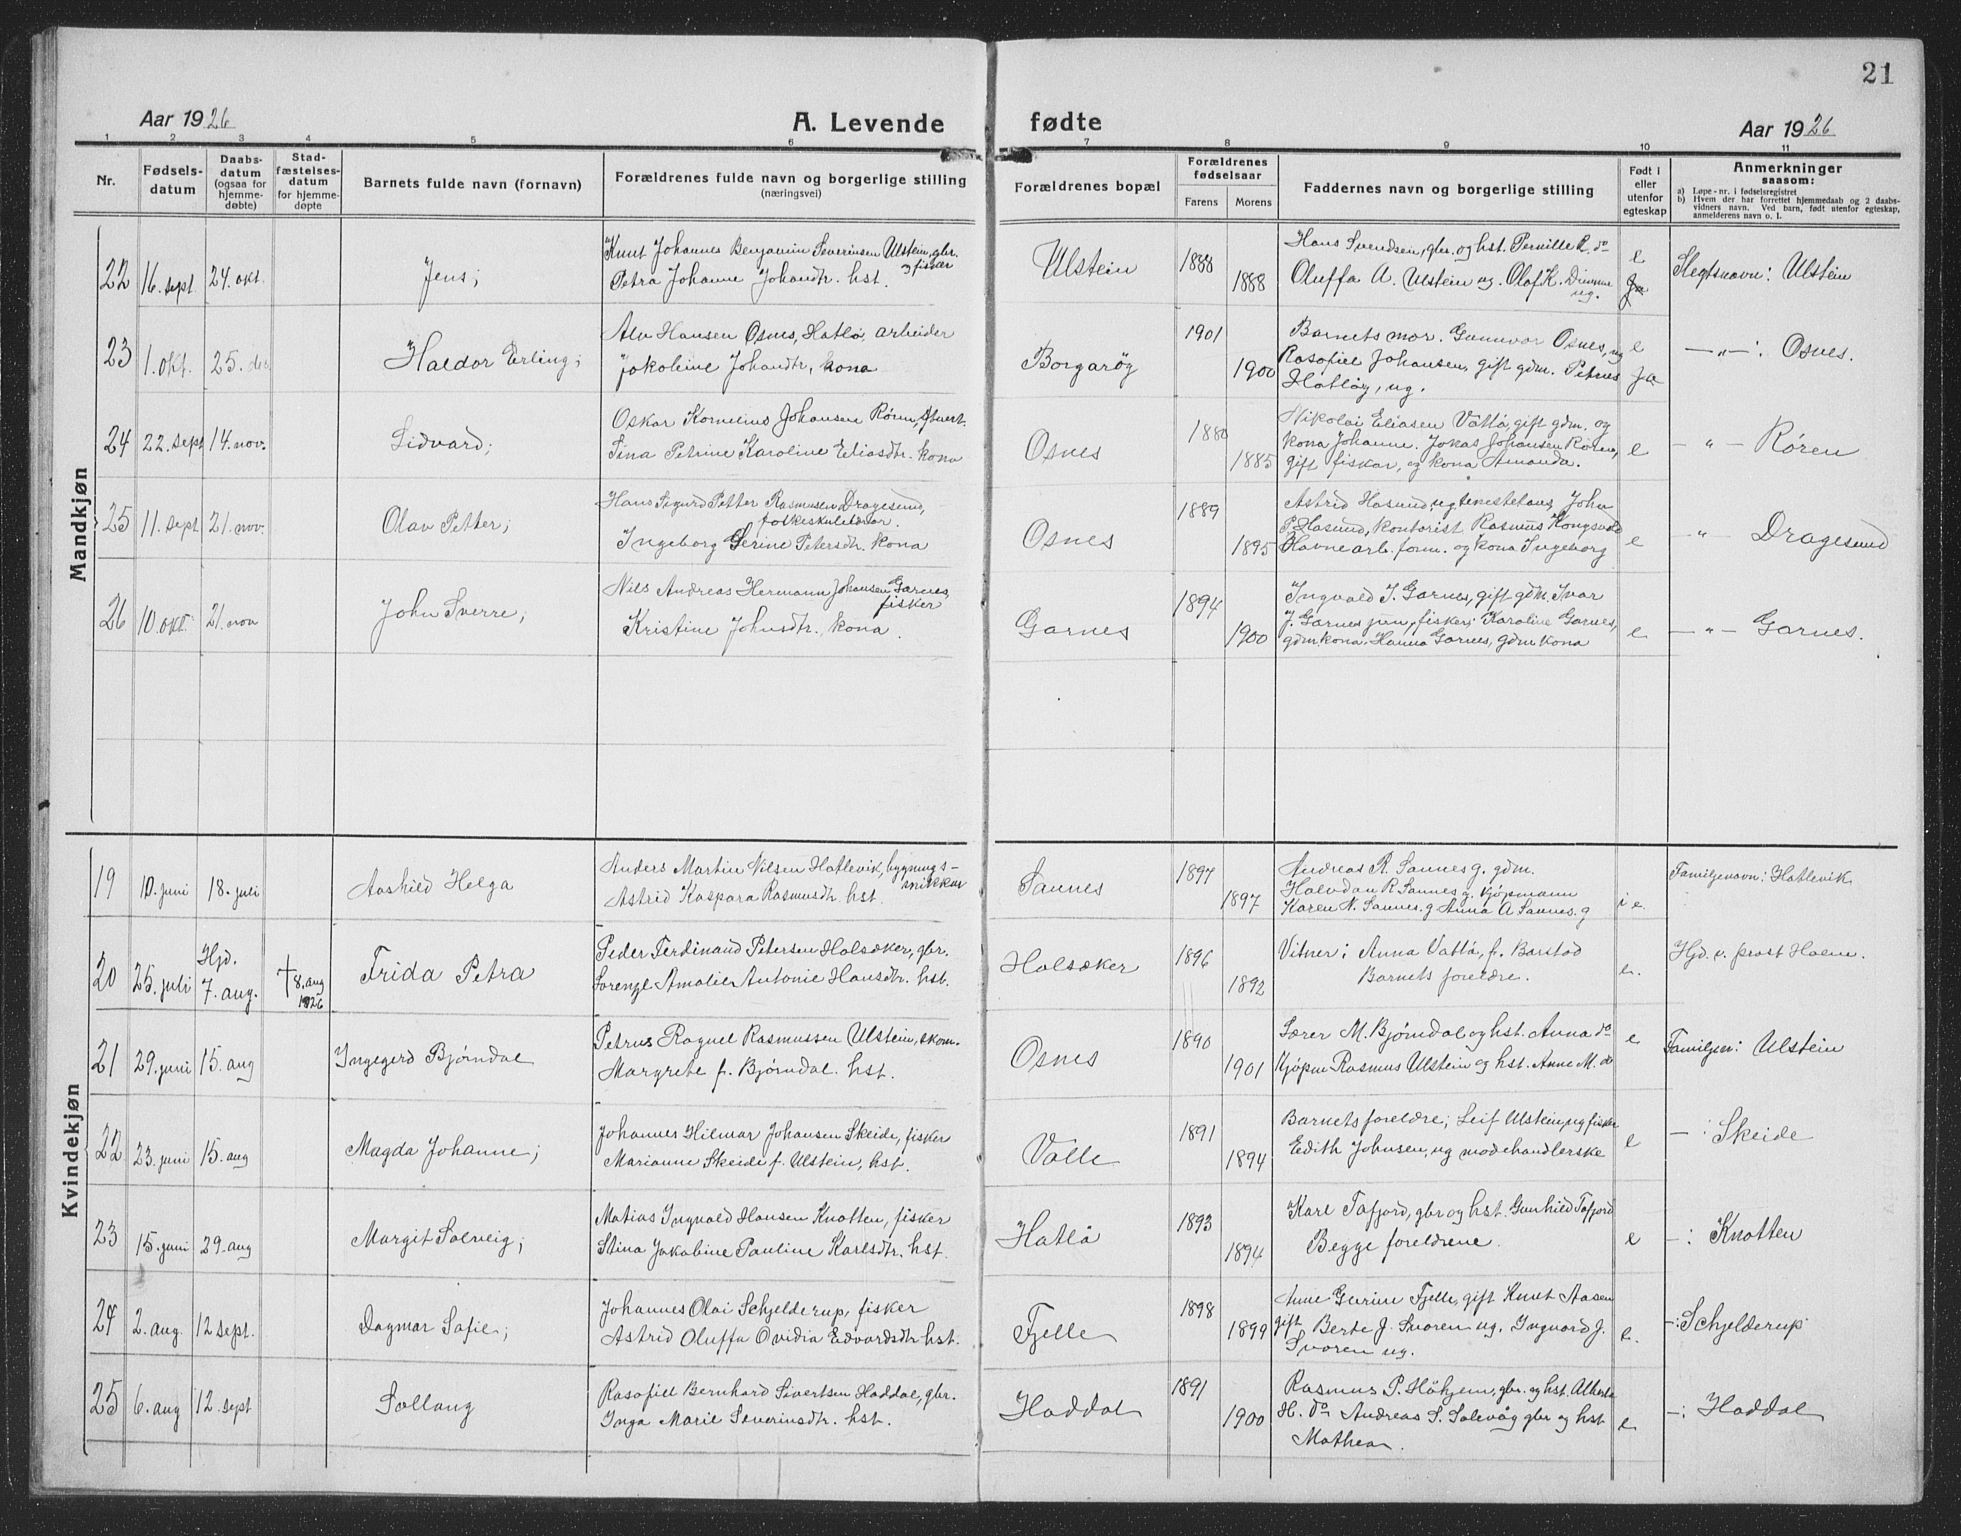 21
Aar 1926
A. Levende fødte
Aar 1926
1 2 3 4 5 6 7 8 9 10 11
Nr.
Fødsels-
datum
Daabs-
datum
(ogsaa for
hjemme-
døbte)
Stad-
fæstelses-
datum
for hjemme-
døpte
Barnets fulde navn (fornavn)
Forældrenes fulde navn og borgerlige stilling
(næringsvei)
Forældrenes bopæl
Forældrenes
fødselsaar
Farens Morens
Faddernes navn og borgerlige stilling
Født i
eller
utenfor
egteskap
Anmerkninger
saasom:
a) Løpe-nr. i fødselsregistret
b) Hvem der har forrettet hjemmedaab og 2 daabs-
vidners navn. Ved barn, født utenfor egteskap,
anmelderens navn o. l.
Mandkjøn
22 16. sept 24. okt. Jens;
Knut Johannes Benjamin Severinsen Ulstein, gbr.
fisker
Petra Johanne Johandtr. hst.
Ulstein 1888 1888
Hans Svendsen, gbr. og hst. Pernille R. do
Oluffa A. Ulstein ug. Olaf K. Dimmen
ug.
e
Slegtsnavn: Ulstein
23 1. okt. 25. des. Haldor Erling;
Alv Hansen Osnes, Hatlø, arbeider
Jakobine Johandtr, kona
Borgarøy 1901 1900
Barnets mor. Gunnvor Osnes, ug
Rasofiel Johansen, gift gdm. Petrus
Hatløy, ug.
e
ja
— " —: Osnes.
24 22. sept 14. nov. Sidvard;
Oskar Kornelius Johansen Røren,
Sina Petrine Karoline Eliasdtr. kona
Osnes 1880 1885
Nikolai Eliasen Vattø, gift gdm. og
kona Johanne. Jokas Johansen Røren,
gift fiskar, og kona Amanda.
e
— " — Røren
25 11. sept 21. nov. Olav Petter;
Hans Sigurd Petter Rasmussen Dragesund,
folkeskulelærar.
Ingeborg Serine Petersdtr. kona
Osnes 1889 1895
Astrid Hasund, ug John
P. Hasund, kontorist Rasmus Kongsvold
Havnearb. form. og kona Ingeborg
e
— " — Dragesund
26 10. okt. 21. nov John Sverre;
Nils Andreas Hermann Johansen Garnes,
fisker
Kristine Johnsdtr., kona.
Garnes 1894 1900
Ingvald J. Garnes, gift gdm. Ivar
J. Garnes jun., fisker; Karoline Garnes,
gdm.kona. Hanna Garnes, gdm kona
e
— " — Garnes.
Kvindekjøn
19 10. juni 18. juli Aashild Helga
Anders Martin Nilsen Hatlevik, bygnings-
snikkar
Astrid Kaspara Rasmusdtr. hst.
Sannes 1897 1897
Andreas R. Sannes g. gdm.
Halvdan R. Sannes g. kjøpmann
Karen N. Sannes. g Anna A Sannes. g
i e.
Familjenavn: Hatlevik
20 25. juli Hjd. 7. aug. † 8. aug 1926 Frida Petra
Peder Ferdinand Petersen Halsæker, gbr.
Sorengl Amalie Antonie Hansdtr. hst.
Halsæker 1896 1892
Vitner: Anna Vattø, f. Barstad
Barnets foreldre.
e.
Hjd. v. prost Holm.
21 29. juni 15. aug Ingegerd Bjørndal
Petrus Raguel Rasmussen Ulstein, skom.
Margrete f. Bjørndal. hst.
Osnes 1890 1901
Lærer M. Bjørndal og hst. Anna do
Kjøpm Rasmus Ulstein og hst. Anne M. do
e
Familjen: Ulstein
22 23. juni 15. aug Magda Johanne;
Johannes Hilmar Johansen Skeide, fisker
Marianne Skeide f. Ulstein, hst.
Valle 1891 1894
Barnets foreldre; Leif Ulstein, ug fisker
Edith Johnsen, ug modehandlerske
e
— : Skeide
23 15. juni 29. aug Margit Solveig;
Matias Ingvald Hansen Knotten, fisker
Stina Jakobine Pauline Karlsdtr. hst.
Hatlø 1893 1894
Karl Tafjord, gbr og hst. Gunhild Tafjord
Begge foreldrene.
e
—: Knotten
24 2. aug. 12 sept. Dagmar Sofie;
Johannes Olai Schjelderup, fisker
Astrid Oluffa Ovidia Edvardsdtr hst.
Fjelle 1898 1899
Anne Gurine Fjelle, gift Knut Aasen
gift Berte J. Svoren ug. Ingvard J.
Svoren ug.
e.
—: Schjelderup
25 6. aug 12. sept Sollaug
Rasofiell Bernhard Sivertsen Haddal, gbr.
Inga Marie Severinsdtr. hst.
Haddal 1891 1900
Rasmus P. Høhjem, gbr. og hst. Alberta
H. do Andreas S. Solevåg gbr og hst
Mathea.
e
—: Haddal